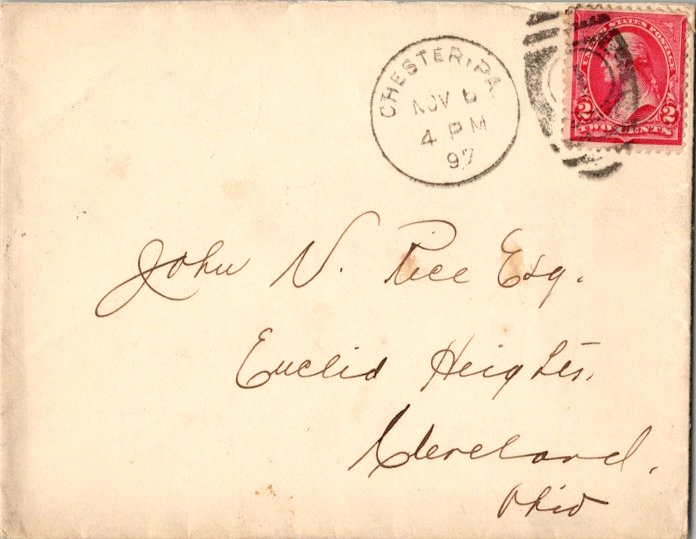 CHESTER, PA.
NOV 6
4 PM
97
UNITED STATES POSTAGE
2 2
TWO CENTS
John N. Rice Esq.
Euclid Heights.
Cleveland.
Ohio